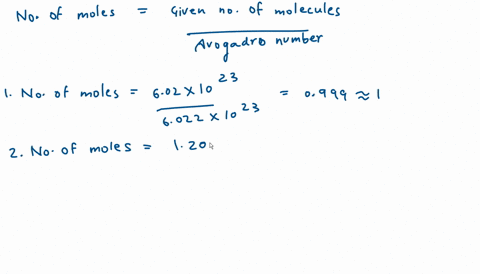 No. of moles = Given no. of molecules
Avogadro number
1. No. of moles = 6.02 × 10^23 = 0.999 ≈ 1
6.022 × 10^23
2. No. of moles = 1.20